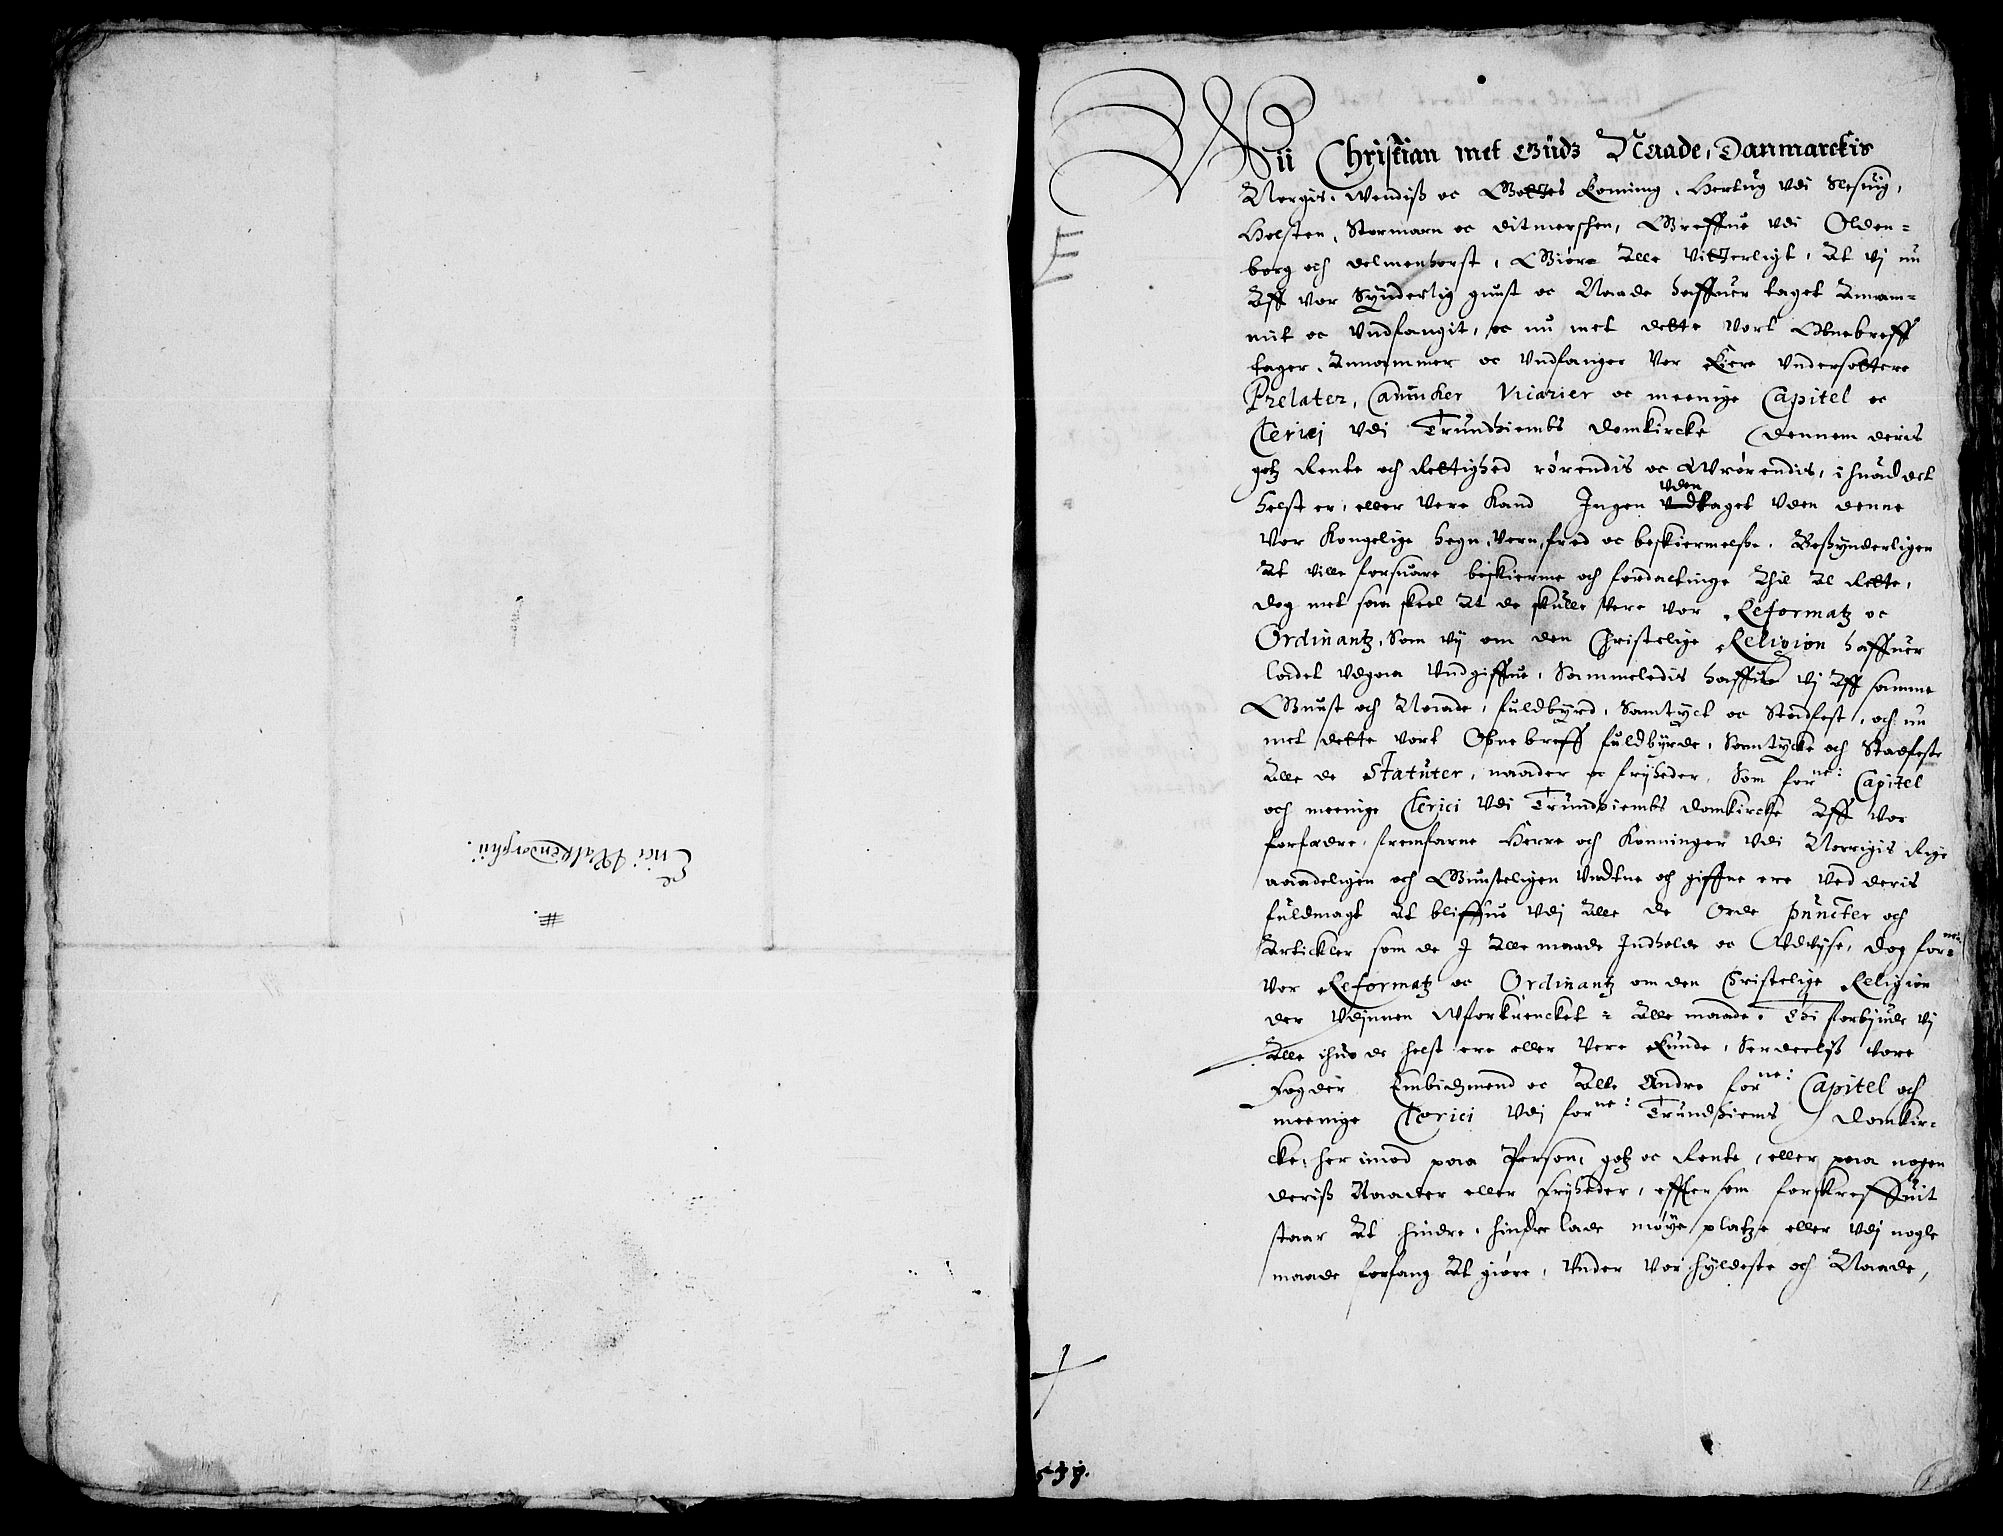 Erici Walkendorphii.
Wii Christian met Gudz Naade, Danmarckis
Norgis, Wendis oc Gottes Koning, Hertug vdi Slesuig,
Holsten, Stormarn oc Ditmerschen, Greffue vdi Olden=
borg och Delmenhorst, Giøre Alle vitterligt, At vj nu
Aff vor Synderlig gunst oc Naade haffuer taget Annam=
mit oc Vndfangit, oc nu met dette vort Obnebreff
tager, Annammer oc Vndfanger vor Kiere vndersottere
Prelater, Canncker Vicarier oc meenige Capitel oc
Clericj vdi Trundhiembs Domkircke dennem deris
gotz Rente och Rettighed rørendis oc Wrørendis, i huad det
helst er, eller vere Kand Ingen vden vndtaget vden denne
Vor Kongelige hegn, vern, fred oc beskiermelse, Besynderligen
At ville forsuare beskierme och fordactinge thil Al Rette,
dog met saa skeel At de skulle vere vor Reformatz oc
Ordinantz, Som vij om den Christelige Religion haffuer
ladet vdgaa vndgiffue, Sammeledis haffue vj Aff samme
Gunst och Naade, fuldbyrd, Samtyct oc Stadfest, och nu
met dette vort Obne breff fuldbyrde, Samtycke och Stadfeste
Alle de Statuter, naader oc fryheder, Som forne: Capitel
och meenige Clerici vdi Trundhiembs domkircke Aff vor
forfædre, fremfarne Herre och Konninger vdi Norrigis Rige
naadeligen och Gunsteligen Vndtne och giffne ere ved deris
fuldmagt At bliffue vdj Alle de Orde puncter och
Artickler som de J Alle maade Indholde oc Vdvyse, dog forne:
vor Reformatz oc Ordinantz om den Christelige Religion
der vdjnnen Wforkrencket i Alle maade, Thi forbiude vj
Alle ihuo de helst ere eller vere Kunde, Serdeelis vore
Fogder Embidzmend oc Alle Andre forne: Capitel och
meenige Clerici vdj forne: Trundhiems Domkir=
cke, her imod paa Person, gotz oc Rente, eller paa nogen
deris Naader eller fryheder, effter som forskreffuit
staar At hindre, hindre lade møye platze eller vdj nogle
maade forfang At giøre, vnder vor hyldeste och Naade,